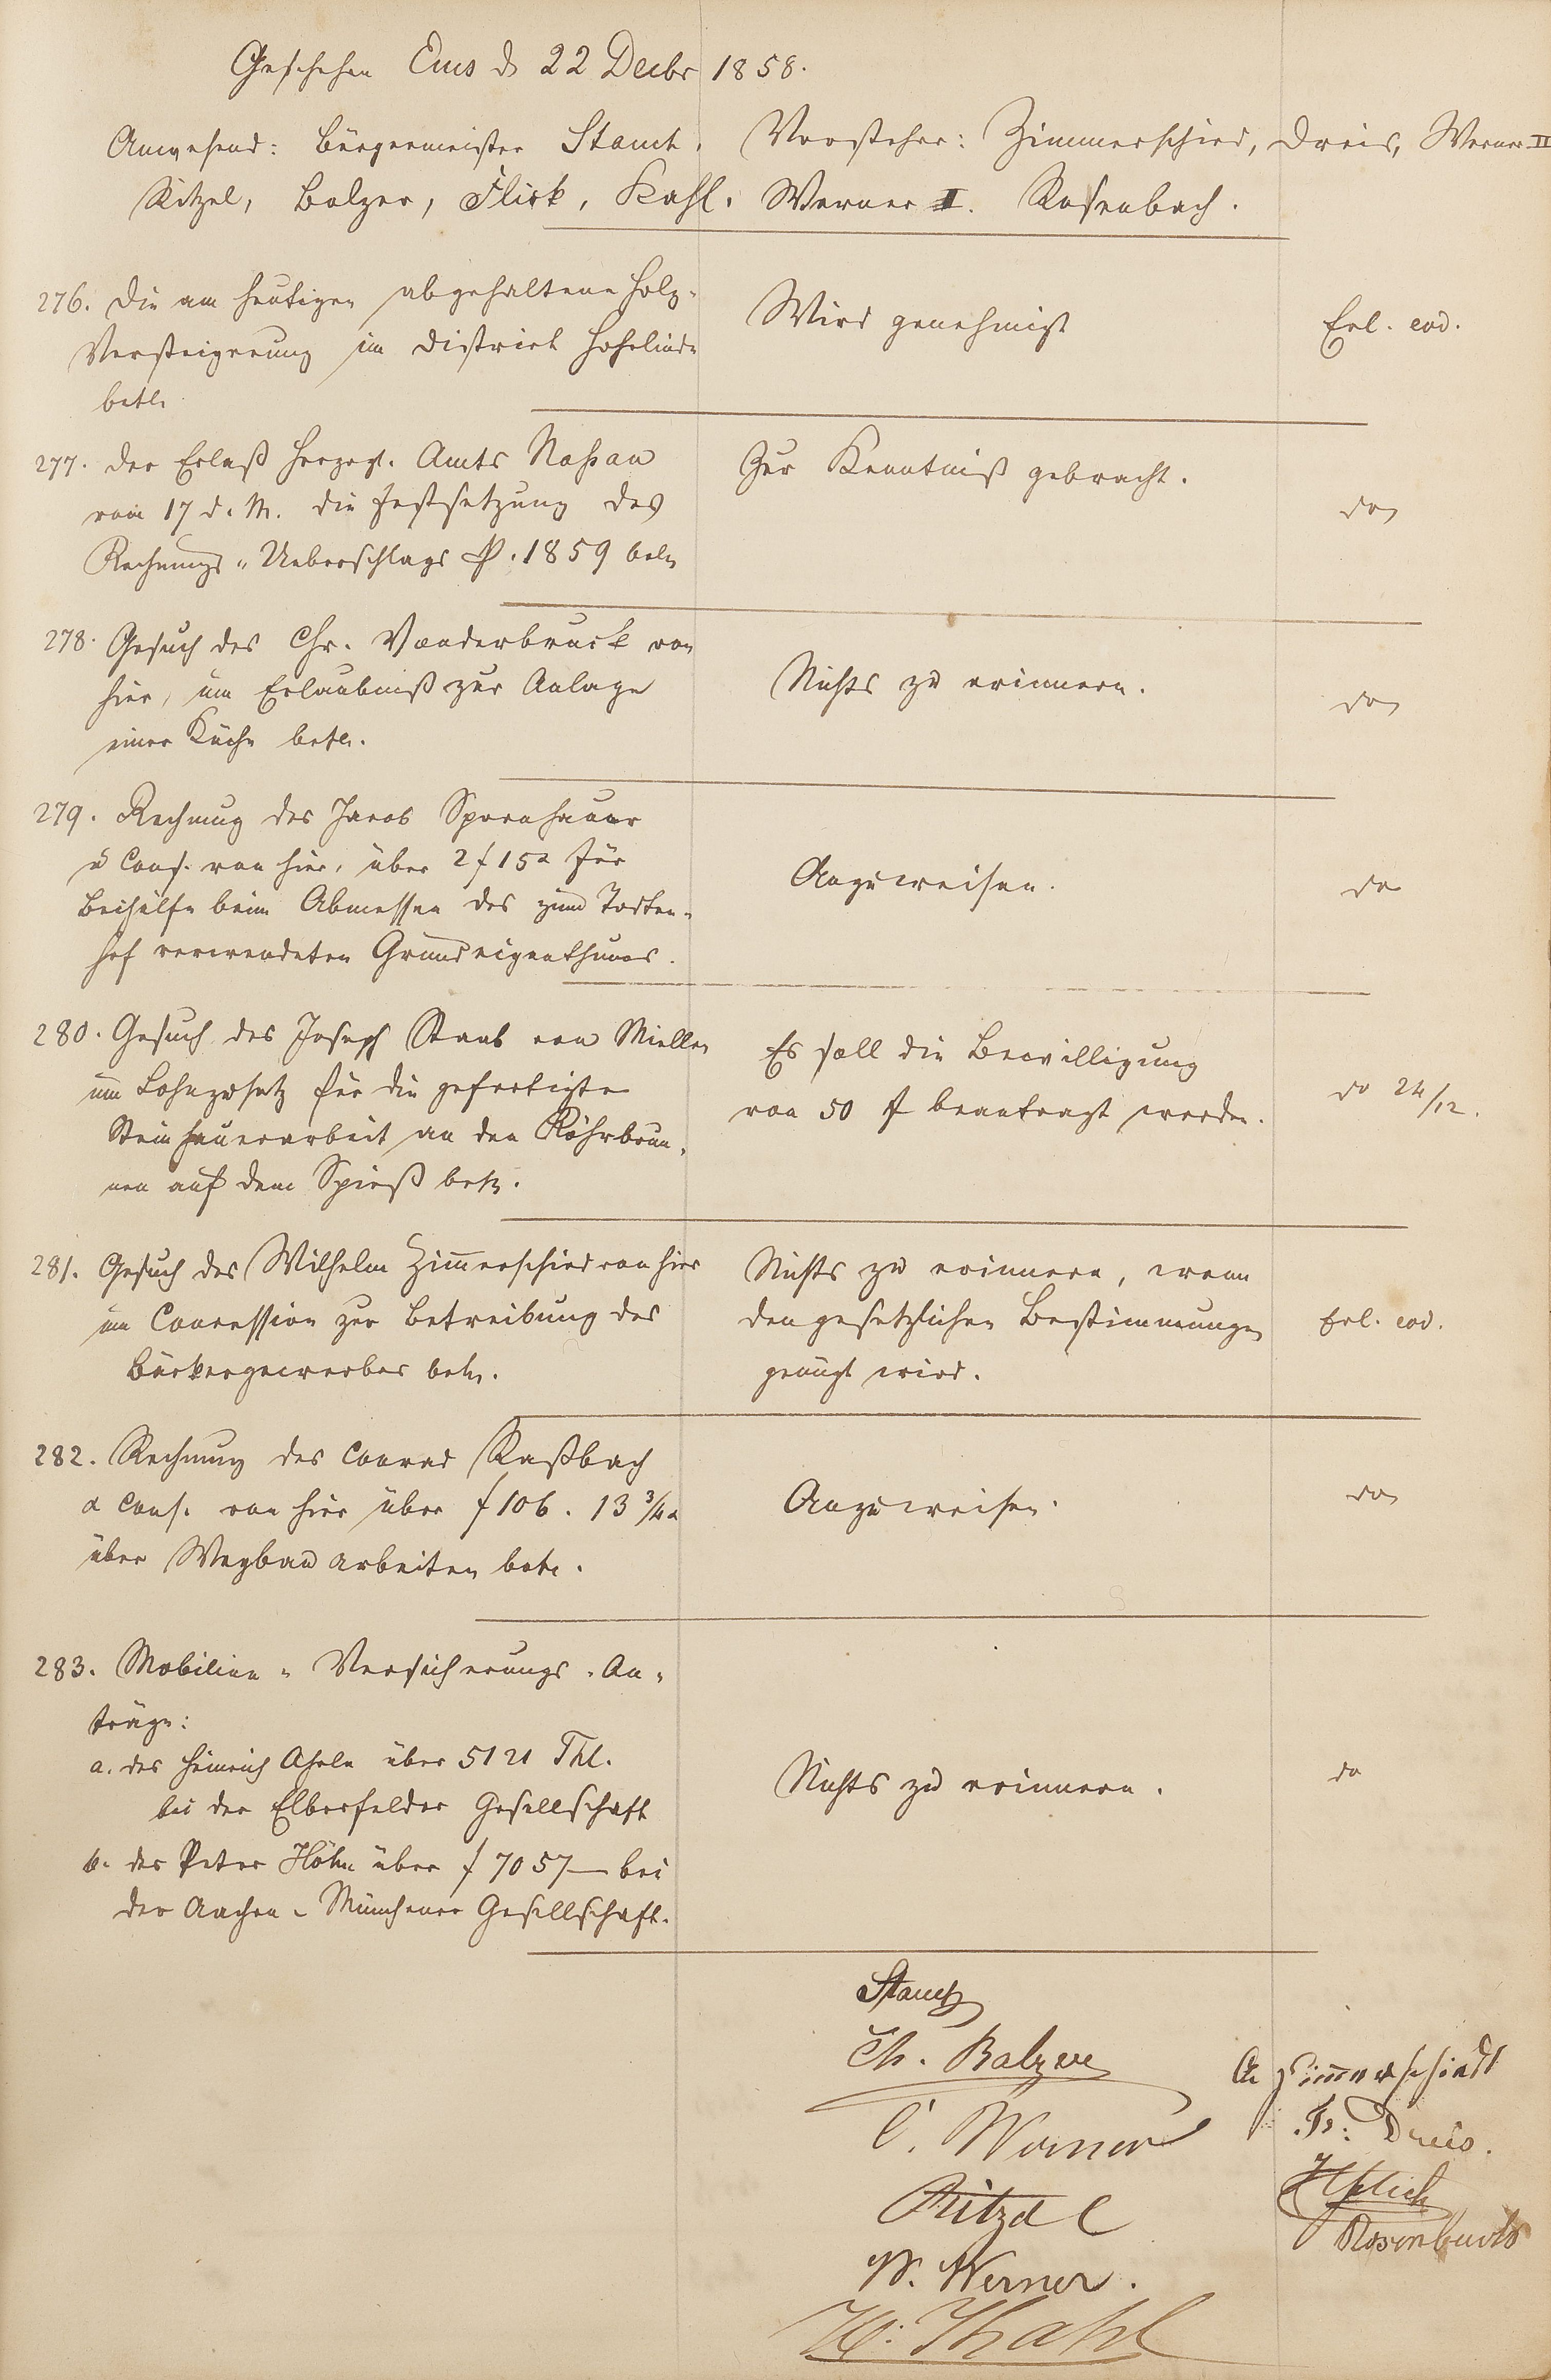 Geschehen Ems d 22 Decbr 1858.
Anwesend: Bürgermeister Stamt. Vorsteher: Zimmerschied, Dreis, Werner II
Ritzel, Balzer, Flick, Kahl. Werner II. Rosenbach.
276. Die am heutigen abgehaltene Holz-
Versteigerung im District Hohelinde
betr.
Wird genehmigt
Erl. eod.
277. Der Erlaß Herzogl. Amts Naßau
vom 17 d. M. die Festsetzung des
Rechnungs-Ueberschlags p. 1859 betr
Zur Kenntniß gebracht.
do
278. Gesuch des Chr. Vonderbruck von
hier, um Erlaubniß zur Anlage
einer Küche betr.
Nichts zu erinnern.
do
279. Rechnung des Jacob Spornhauer
u Cons. von hier, über 2 f 15 x für
Beihülfe beim Abmessen des zum Todten-
hof verwendeten Grundeigenthums.
Anzuweisen.
do
280. Gesuch des Joseph Staab von Miellen
um Lohnzusatz für die gefertigte
Steinhauerarbeit an den Röhrbrun-
nen auf dem Spieß betr.
Es soll die Bewilligung
von 50 f beantragt werden.
do 24/12.
281. Gesuch des Wilhelm Zimerschied von hier
um Concession zur Betreibung des
Bäckergewerbes betr.
Nichts zu erinnern, wenn
den gesetzlichen Bestimmungen
genügt wird.
Erl. eod.
282. Rechnung des Conrad Kaßbach
& Cons. von hier über f 106. 13 3/4 x
über Wegbau arbeiten betr.
Anzuweisen.
do
283. Mobilien-Versicherungs-An-
träge:
a. des Heinrich über 5121 Thl.
bei der Elberfelder Gesellschaft
b. des Peter Höhn über f 7057 — bei
der Aachen-Münchener Gesellschaft.
Nichts zu erinnern.
do
Th. Balzer
C. Werner
Ritzel
W. Werner.
Kahl
Zimmerschiedt
Fr: Dreis.
Flick
Rosenbach